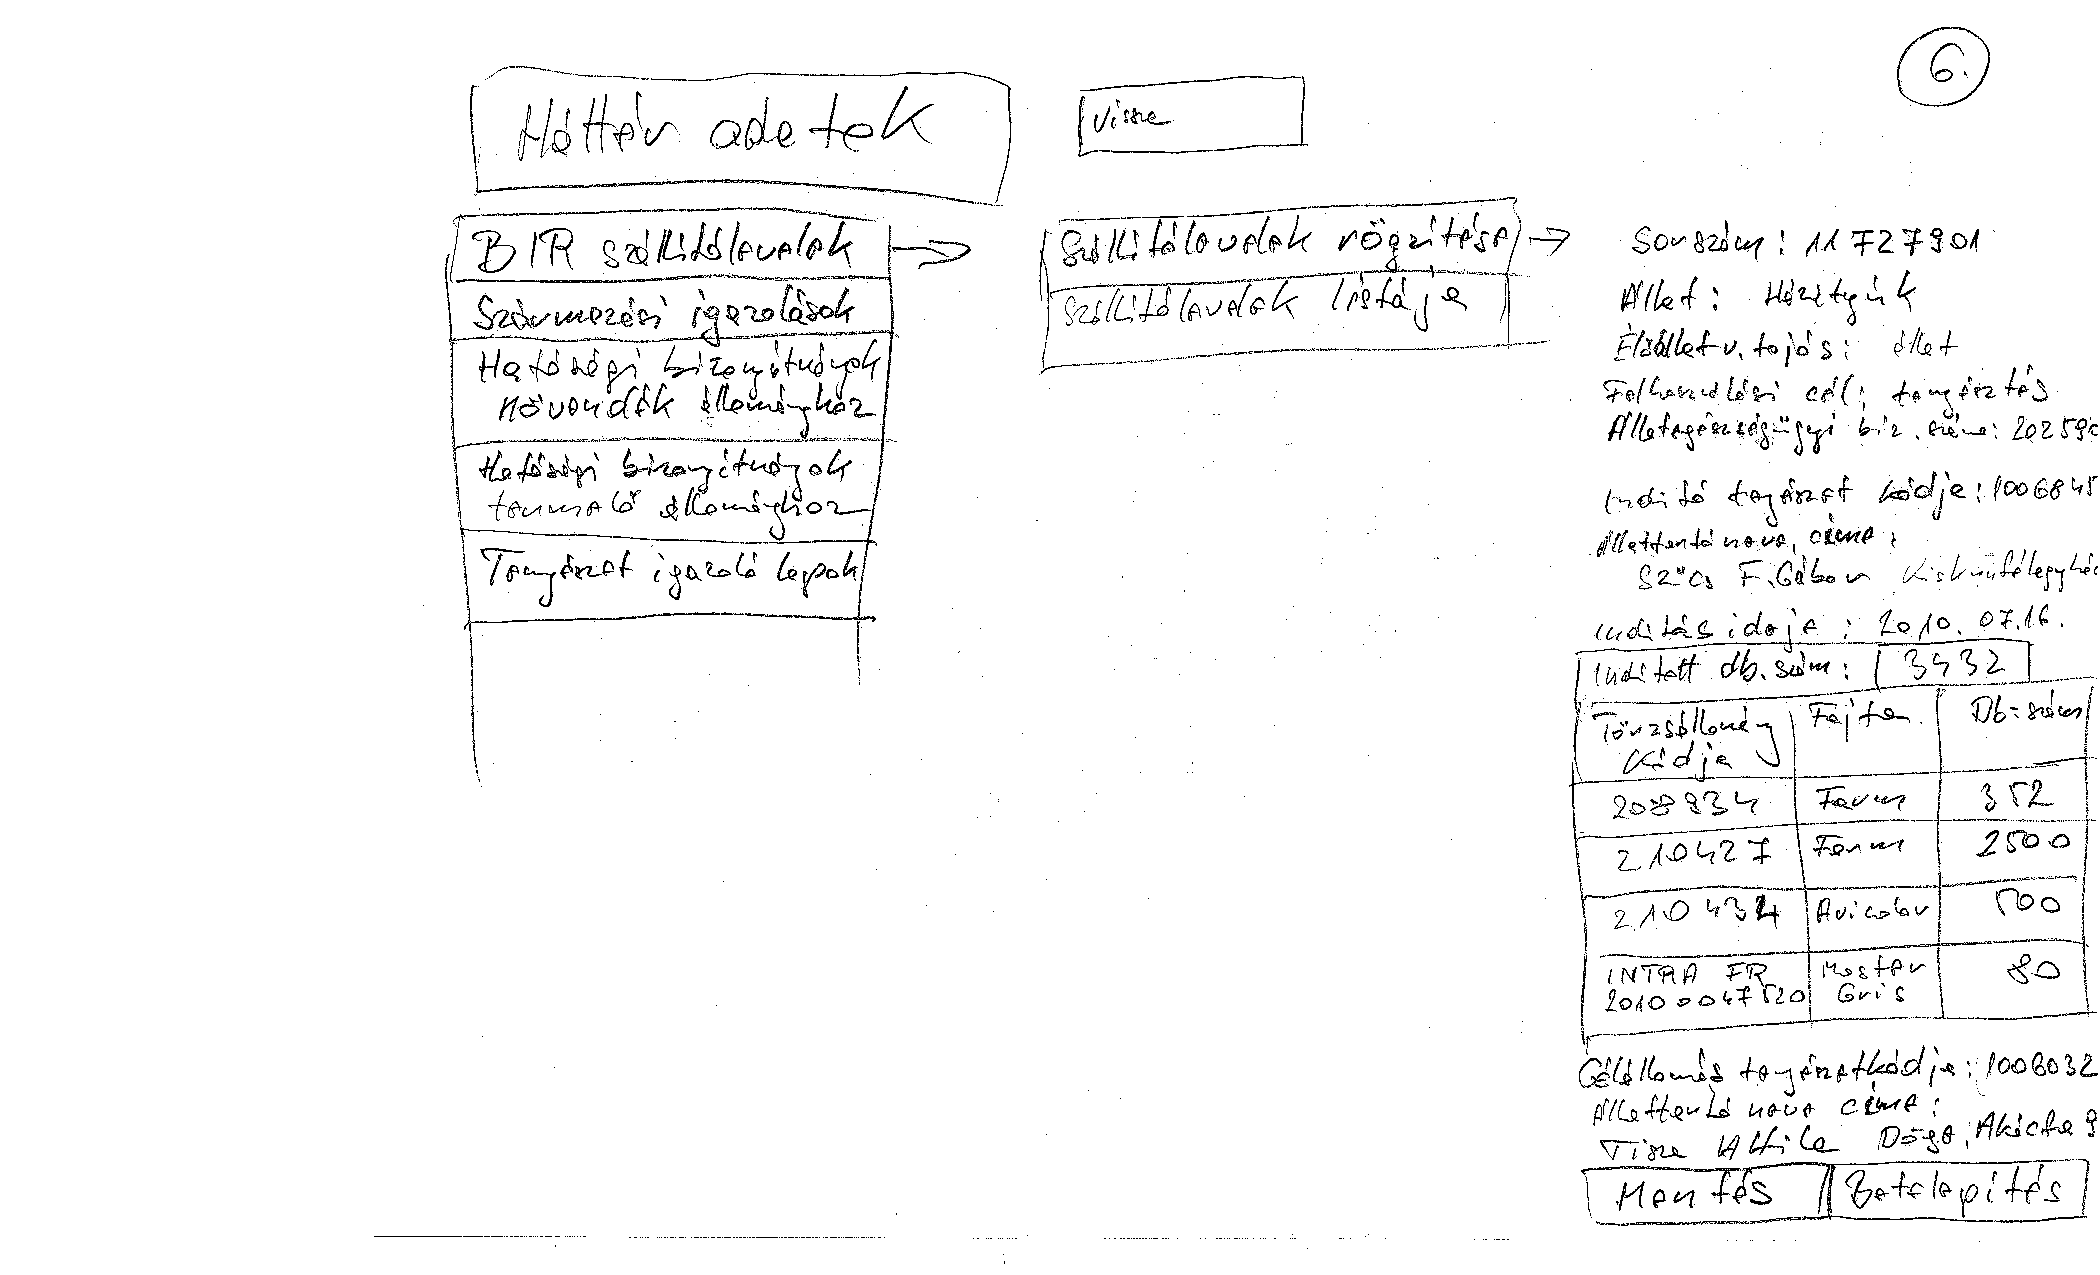 6.
Háttér adatok
Vissza
BIR szállítólevelek
Származási igazolások
Hatósági bizonyítványok
növendék állományhoz
Hatósági bizonyítványok
termelő állományhoz
Tenyészet igazoló lapok
Szállítólevelek rögzítése
Szállítólevelek listája
Sorszám: 11727901
Állat: Házityúk
Élőállat v. tojás: állat
Felhasználási cél: tenyésztés
Állategészségügyi biz. száma: 20259
Indító tenyészet kódja: 1006845
Állattartó neve, címe:
Szűcs F. Gábor Kiskunfélegyhá
Indítás ideje: 2010.07.16.
Indított db.szám: 3432
Törzsállomány kódja Fajta Db-szám
208934 Farm 352
210427 Farm 2500
210434 Avicolor 500
INTRA FR Master 80
20100047520 Gris
Célállomás tenyészetkódja: 1008032
Állattartó neve címe:
Tisza Attila Dóga, Akácfa 9
Mentés Betelepítés